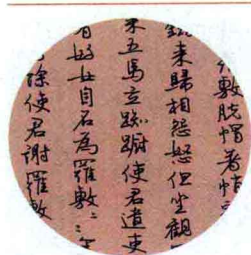 敷脱帽者帩
鋤來歸相怨怒但坐觀
來五馬立踟蹰使君遣吏
有好女自名為羅敷
餘使君謝羅敷